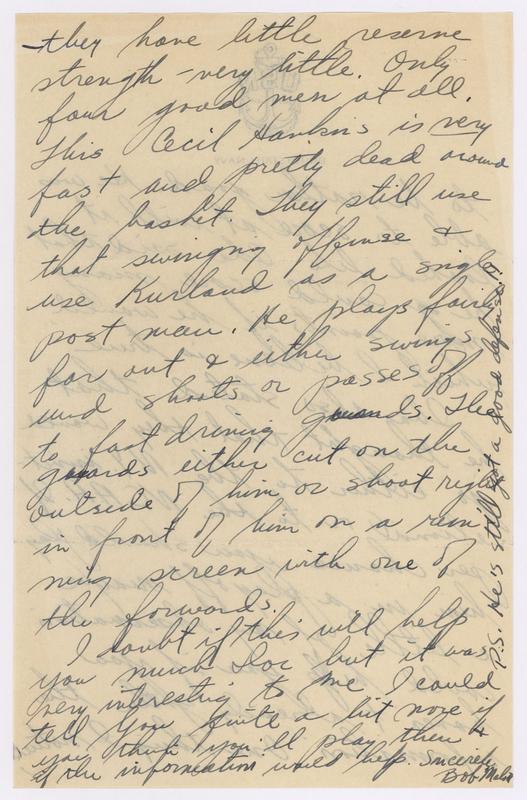 they have little reserve
strength - very little. Only
four good men at all.
This Cecil Hankins is very
fast and pretty dead around
the basket. They still use
that swinging offense &
use Kurland as a single
post man. He plays fairly
far out & either swings
and shoots or passes off
to fast driving guards. The
guards either cut on the
outside of him or shoot right
in front of him on a run
ning screen with one of
the forwards.
I doubt if this will help
you much Doc but it was
very interesting to me I could
tell you quite a bit more if
you think you'll play them &
if the information would help. Sincerely
Bob
P.S. He's still got a good defense!!